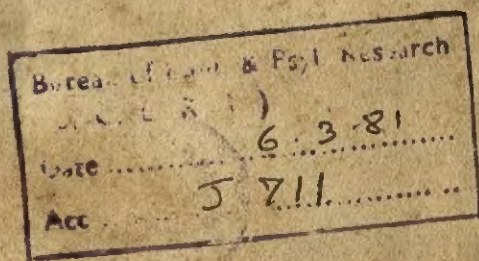 Bureau of Educ & Psyl Research
Date ........ 6. 3. 81 ........
Acc ........ J 711 ........